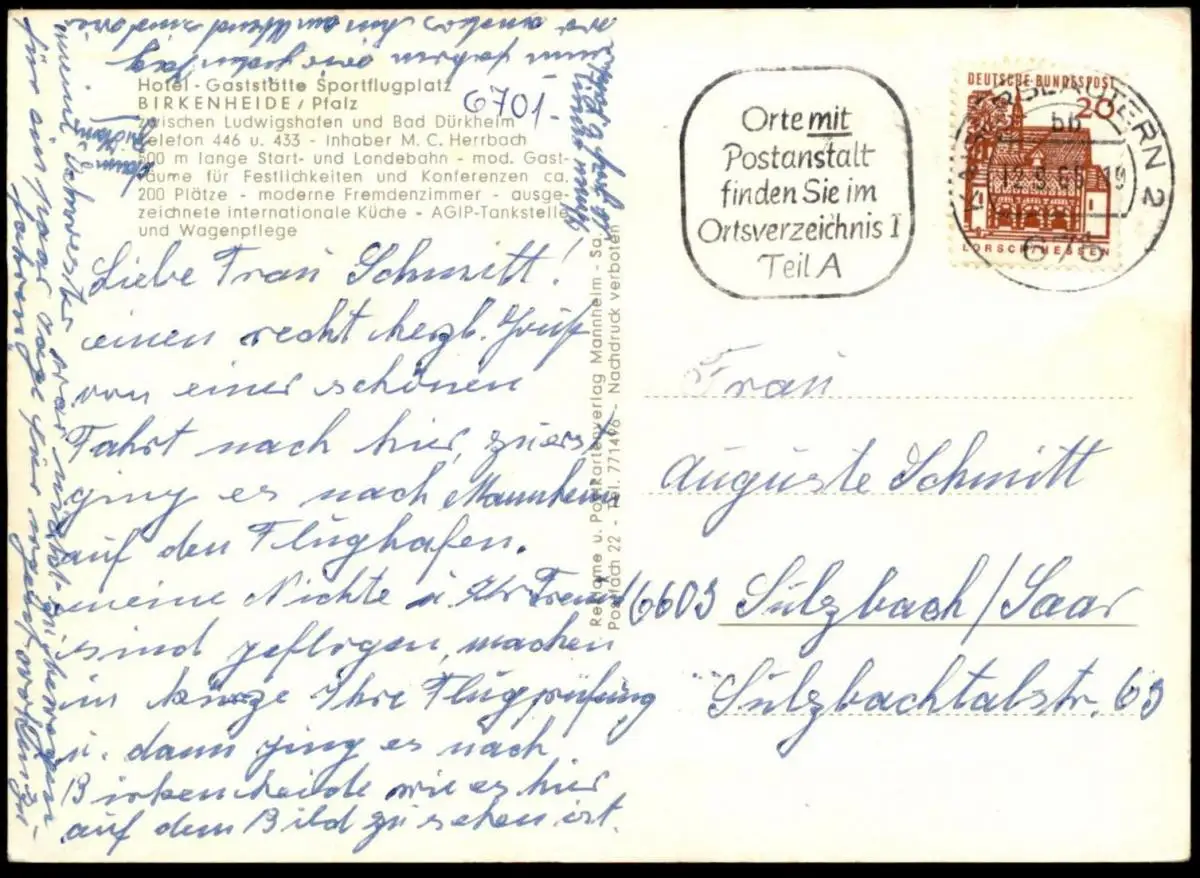 Hotel - Gaststätte Sportflugplatz
BIRKENHEIDE / Pfalz
zwischen Ludwigshafen und Bad Dürkheim
Telefon 446 u. 433 - Inhaber M. C. Herrbach
500 m lange Start- und Landebahn - mod. Gast-
räume für Festlichkeiten und Konferenzen ca.
200 Plätze - moderne Fremdenzimmer - ausge-
zeichnete internationale Küche - AGIP-Tankstelle
und Wagenpflege
6701
Liebe Frau Schmitt!
einen recht herzl. Gruß
von einer schönen
Fahrt nach hier, zuerst
ging es nach Mannheim
auf den Flughafen.
meine Nichte u. Ihr Freund
sind geflogen, machen
in kürze Ihre Flugprüfung
u. dann ging es nach
Birkenheide wie es hier
auf dem Bild zu sehen ist.
meine Schwester war nicht
für ein paar Tage
Reklame u. Postkartenverlag Mannheim - Sa
Postfach 22 - Tel. 771496 - Nachdruck verboten
Orte mit
Postanstalt
finden Sie im
Ortsverzeichnis I
Teil A
DEUTSCHE BUNDESPOST
20
LORSCH/HESSEN
KAISERSLAUTERN 2
675
Frau
Auguste Schmitt
6603 Sulzbach/Saar
Sulzbachtalstr. 63